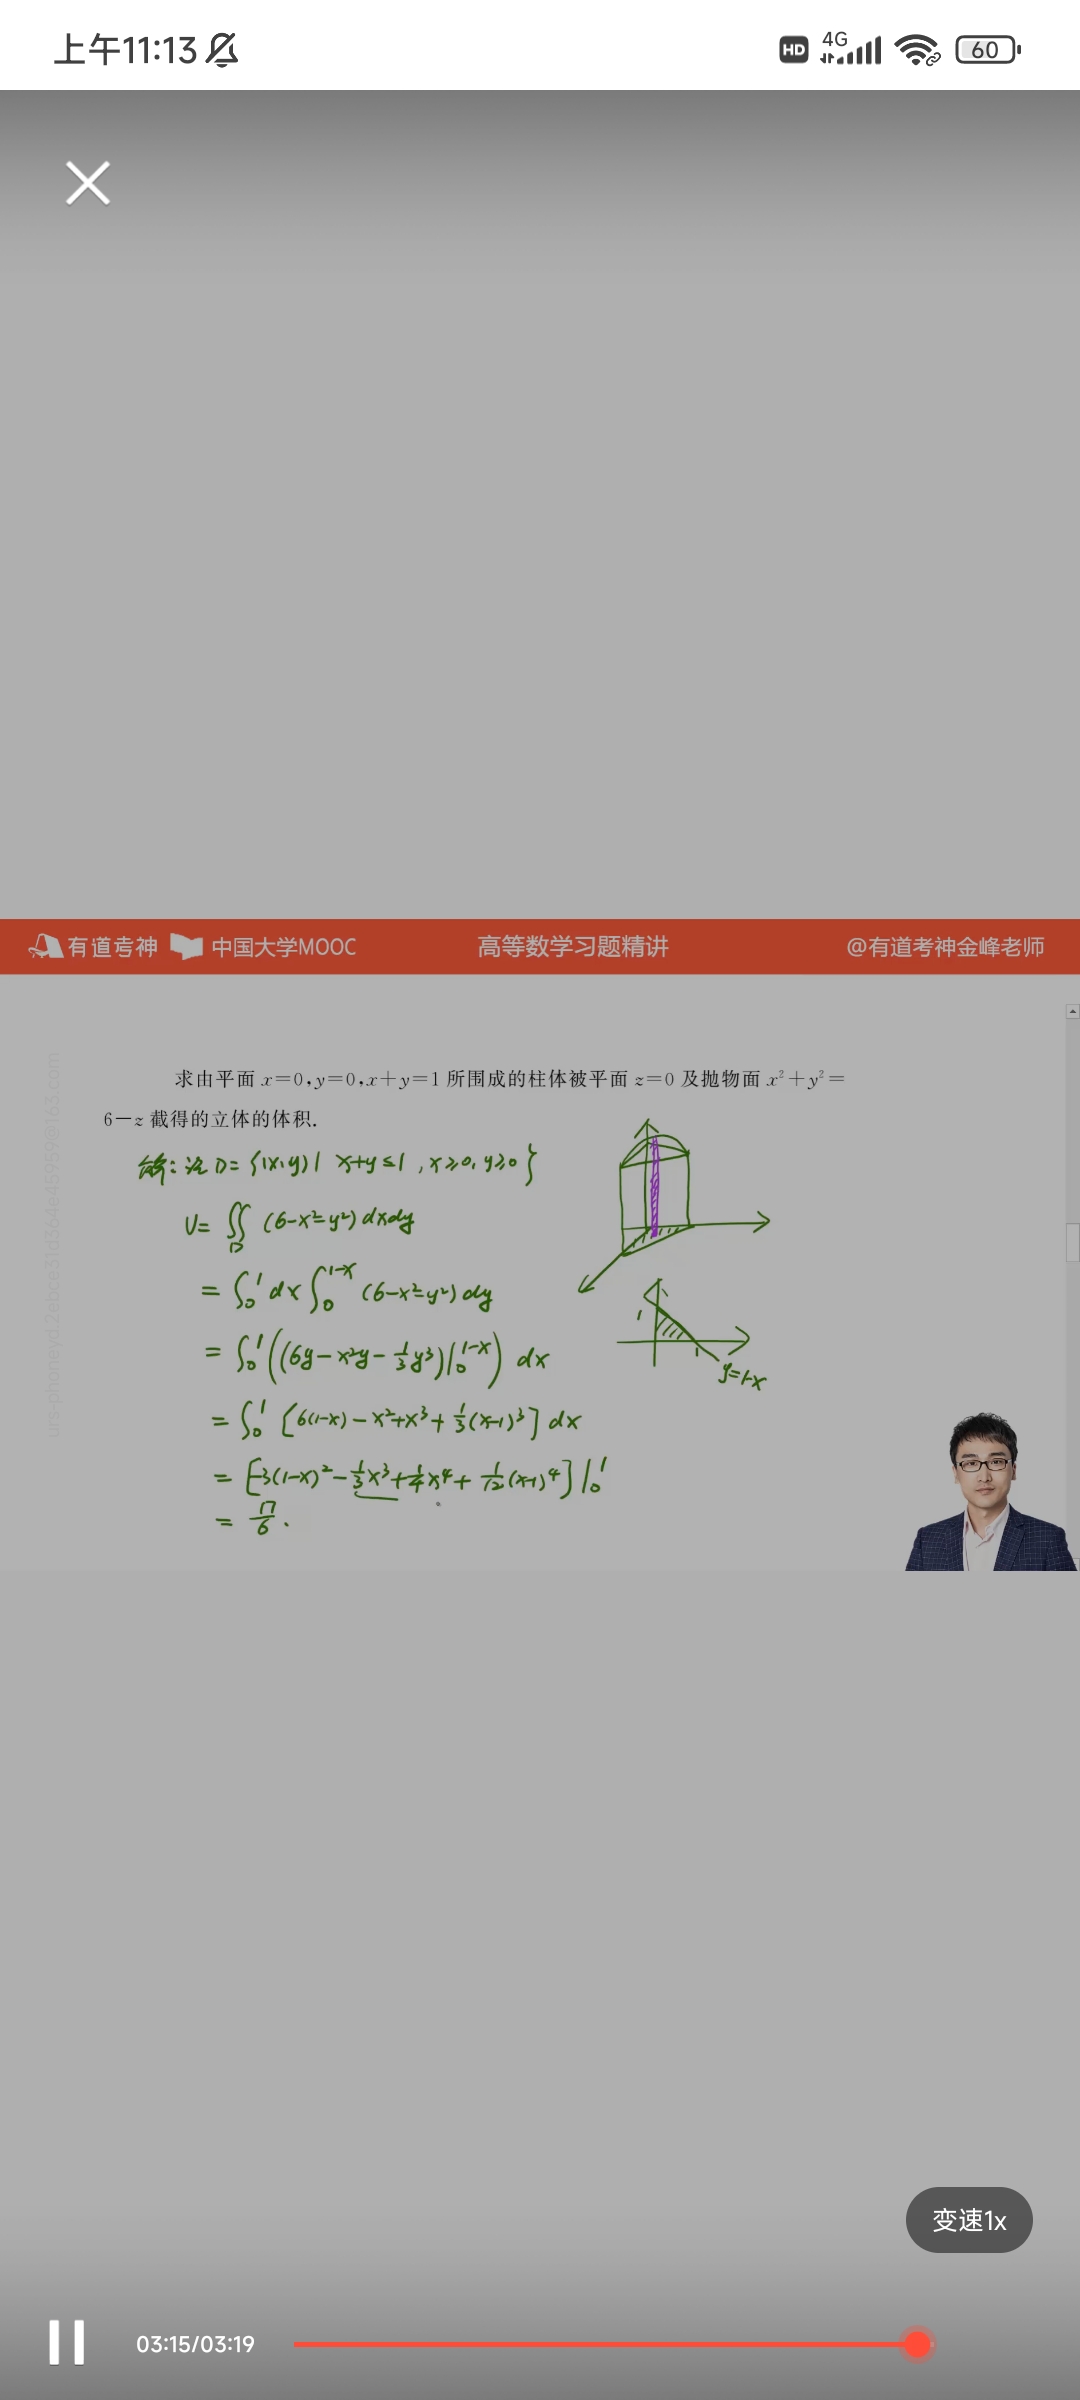 上午11:13
HD 4G 60
有道考神 中国大学MOOC 高等数学习题精讲 @有道考神金峰老师
求由平面 x=0,y=0,x+y=1 所围成的柱体被平面 z=0 及抛物面 x²+y²=
6-z 截得的立体的体积.
解: 设 D={(x,y)| x+y≤1, x≥0, y≥0}
V=∬_D (6-x²-y²)dxdy
=∫₀¹dx∫₀^{1-x}(6-x²-y²)dy
=∫₀¹((6y-x²y-1/3y³)|₀^{1-x})dx
=∫₀¹[6(1-x)-x²+x³+1/3(x-1)³]dx
=[-3(1-x)²-1/3x³+1/4x⁴+1/12(x-1)⁴]|₀¹
=17/6.
1
1
y=1-x
变速1x
03:15/03:19